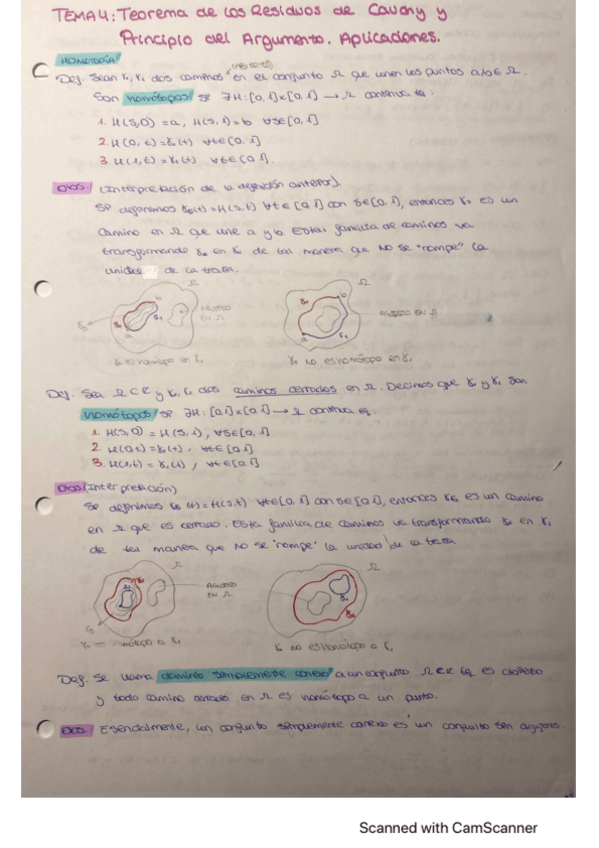 TEMA 4: Teorema de los Residuos de Cauchy y
Principio del Argumento. Aplicaciones.
HOMOTOPÍA
Def. Sean γ₀, γ₁ dos caminos en el conjunto Ω que unen los puntos a, b ∈ Ω.
Son homótopos si ∃ H: [0,1]×[0,1] → Ω continua tq:
1. H(s,0) = a, H(s,1) = b ∀s∈[0,1]
2. H(0,t) = γ₀(t) ∀t∈[0,1]
3. H(1,t) = γ₁(t) ∀t∈[0,1].
Obs: (Interpretación de la definición anterior).
Si definimos γs(t) = H(s,t) ∀t∈[0,1] con s∈[0,1], entonces γs es un
camino en Ω que une a y b. Esta familia de caminos va
transformando γ₀ en γ₁ de tal manera que no se "rompe" la
unidad de la traza.
Ω
Ω
AGUJERO
EN Ω
AGUJERO EN Ω
γ₀ es homótopo en γ₁
γ₀ no es homótopo en γ₁
Def. Sea Ω ⊂ C y γ₀, γ₁ dos caminos cerrados en Ω. Decimos que γ₀ y γ₁ son
homótopos si ∃ H: [0,1]×[0,1] → Ω continua tq:
1. H(s,0) = H(s,1), ∀s∈[0,1]
2. H(0,t) = γ₀(t), ∀t∈[0,1]
3. H(1,t) = γ₁(t), ∀t∈[0,1]
Obs: (Interpretación)
Si definimos γs(t) = H(s,t) ∀t∈[0,1] con s∈[0,1], entonces γs es un camino
en Ω que es cerrado. Esta familia de caminos va transformando γ₀ en γ₁
de tal manera que no se "rompe" la unidad de la traza
Ω
Ω
AGUJERO
EN Ω
γ₀ es homótopo a γ₁
γ₀ no es homótopo a γ₁
Def. Se llama dominio simplemente conexo a un conjunto Ω ⊂ C tq es abierto
y todo camino cerrado en Ω es homótopo a un punto.
Obs: Esencialmente, un conjunto simplemente conexo es un conjunto sin agujeros.
Scanned with CamScanner